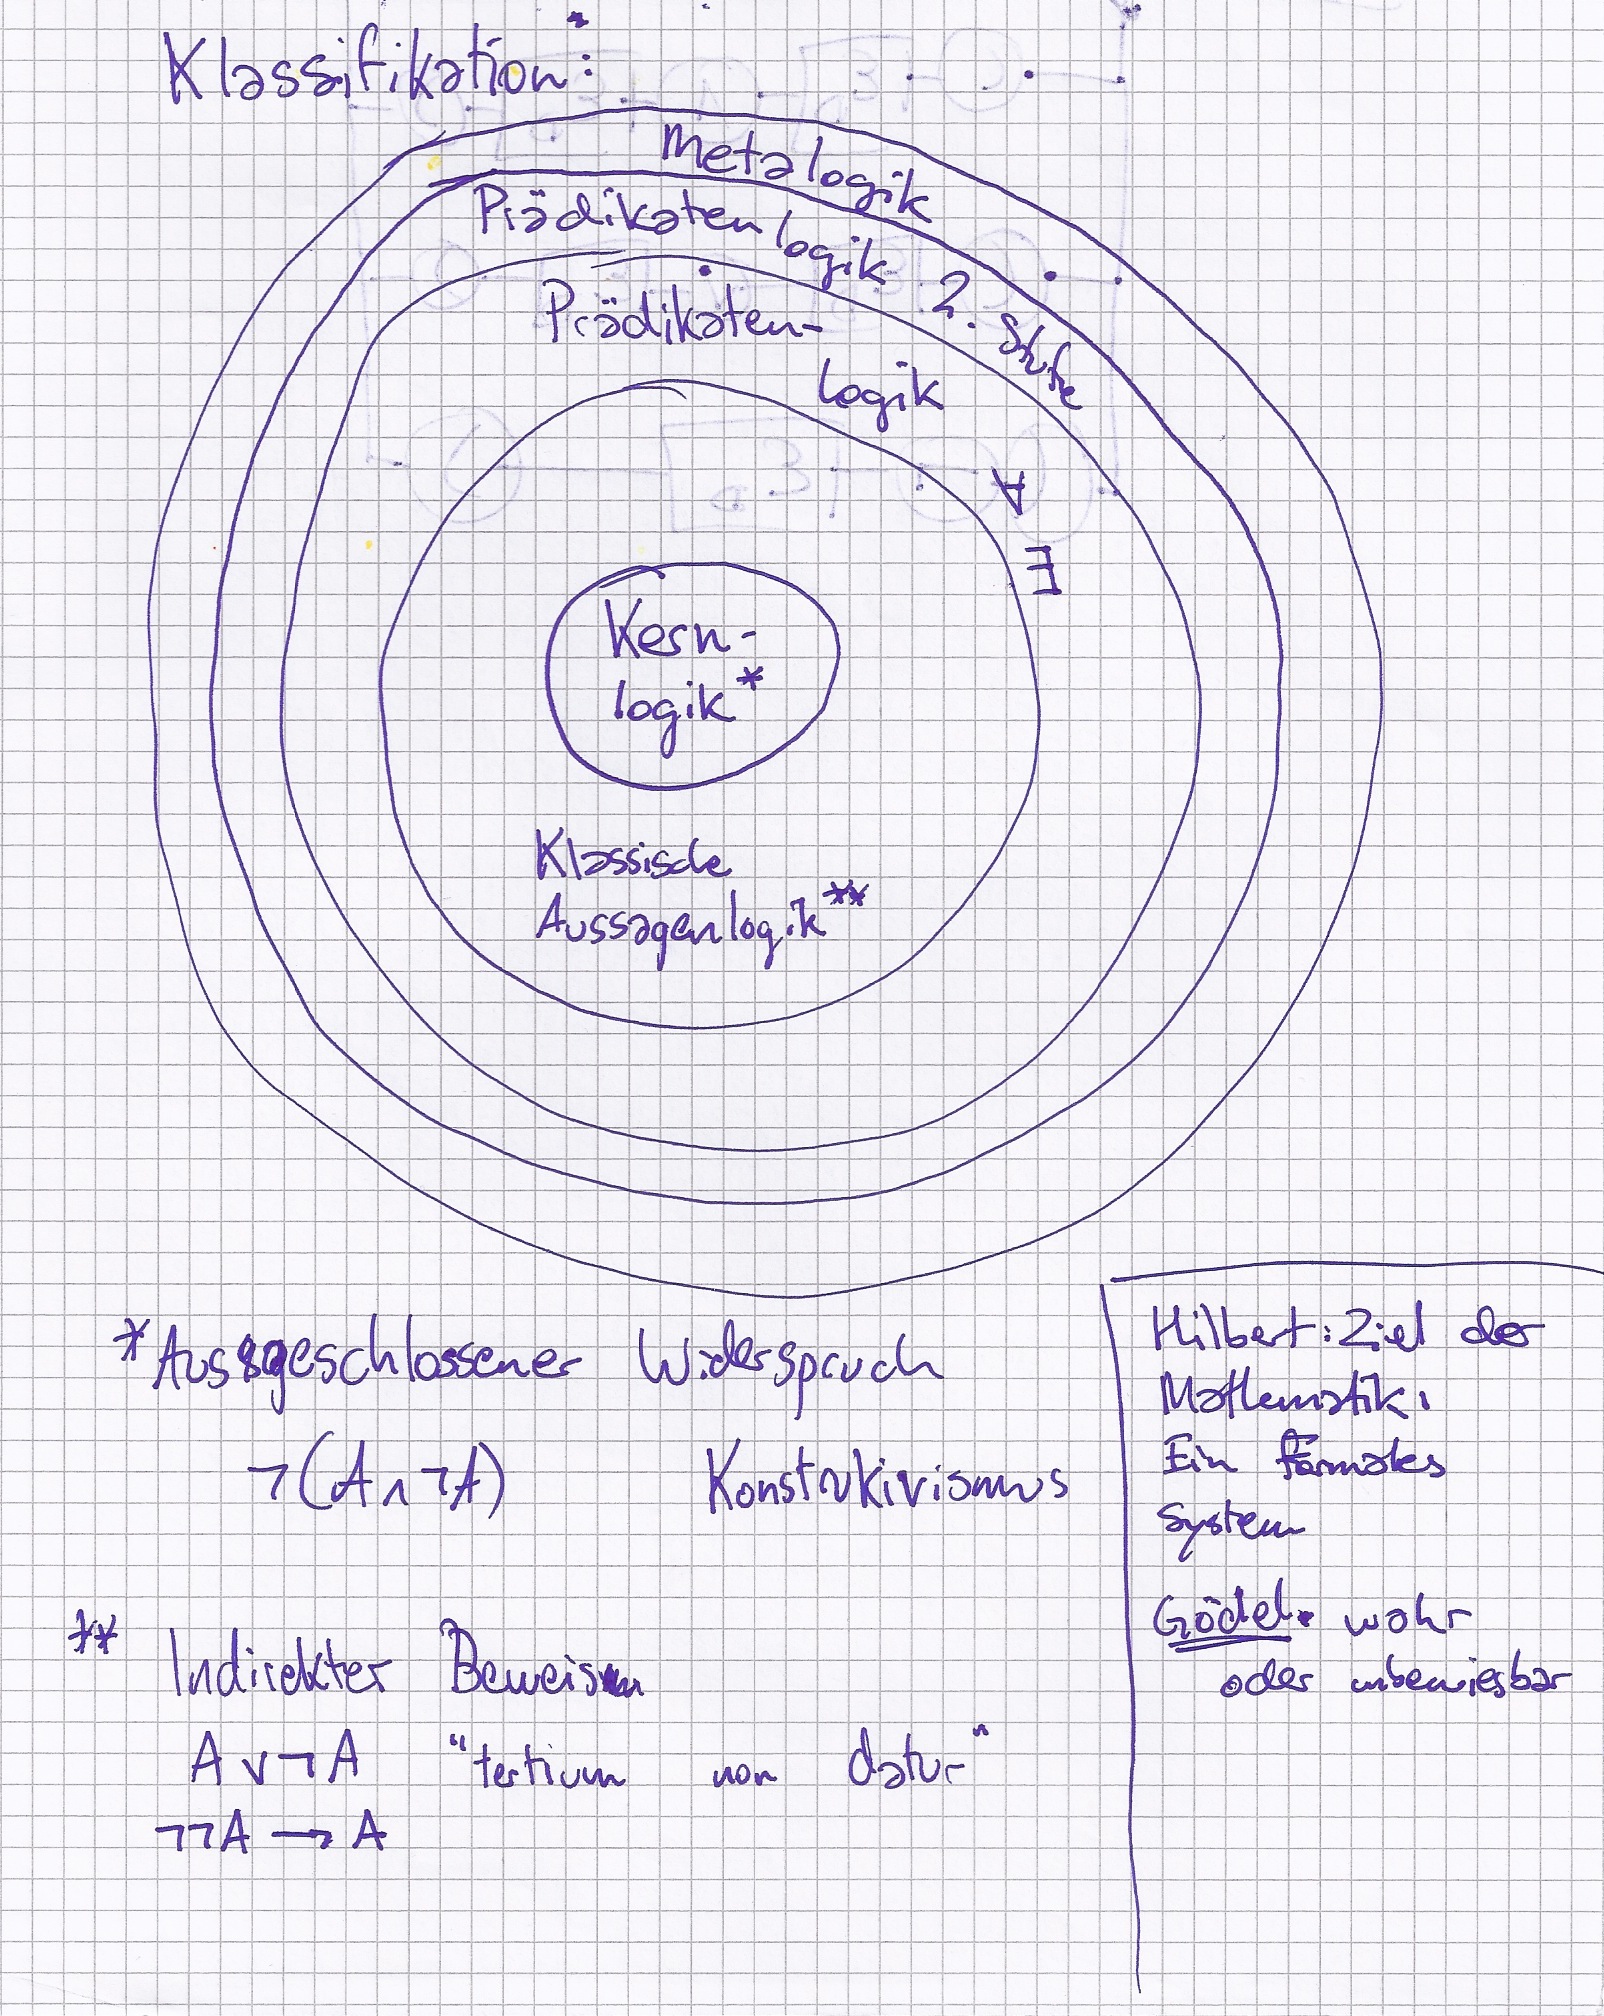 Klassifikation*:
Metalogik
Prädikatenlogik 2. Stufe
Prädikaten-
logik
∀
∃
Kern-
logik*
Klassische
Aussagenlogik**
*Aussgeschlossener Widerspruch
¬(A∧¬A) Konstrukivismus
** Indirekter Beweis
A∨¬A "tertium non datur"
¬¬A → A
Hilbert: Ziel der
Mathematik:
Ein formales
System
Gödel: wahr
oder unbewiesbar